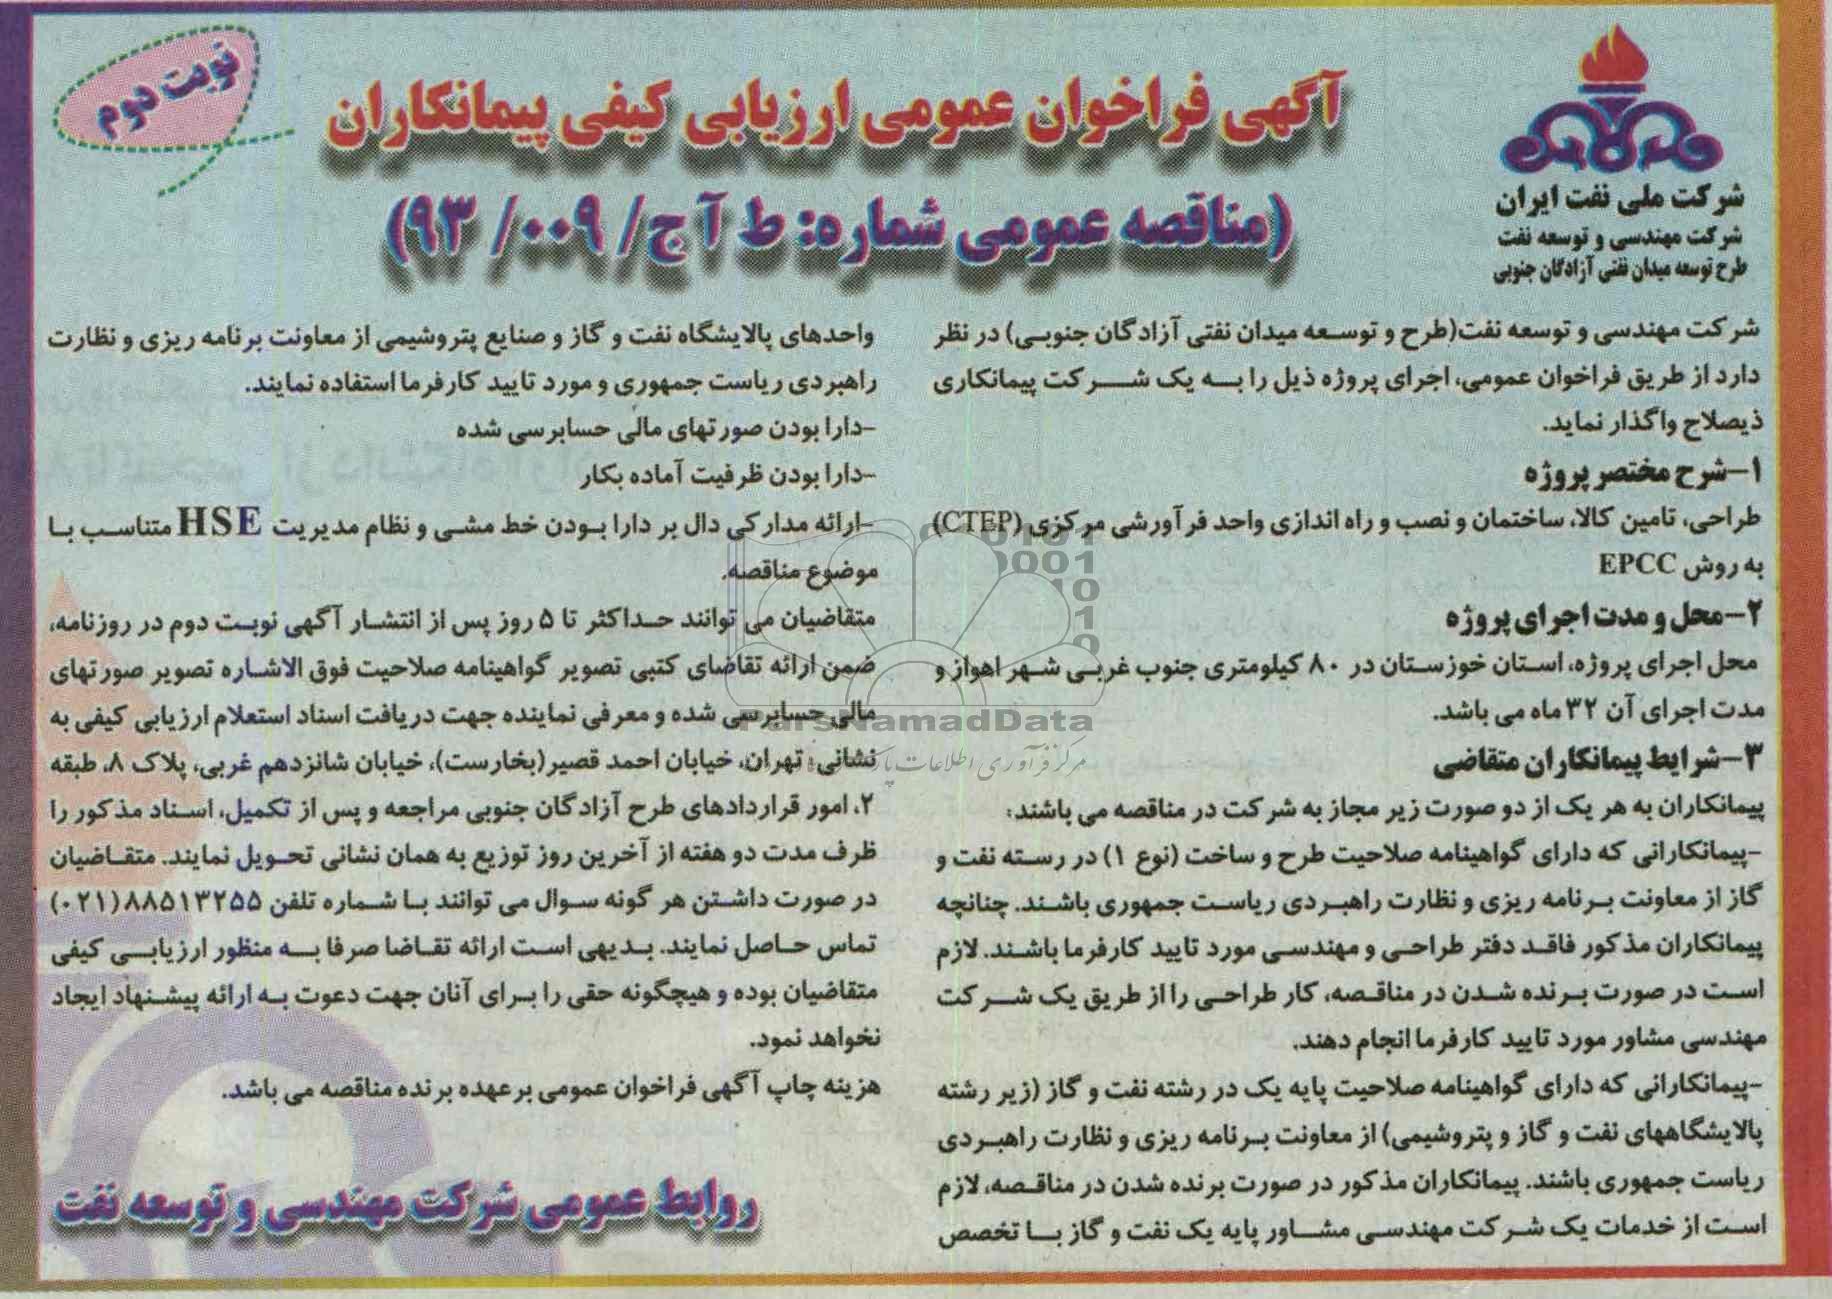 نوبت دوم
آگهی فراخوان عمومی ارزیابی کیفی پیمانکاران
(مناقصه عمومی شماره: ط آ ج/ ۰۰۹/ ۹۳)
شرکت ملی نفت ایران
شرکت مهندسی و توسعه نفت
طرح توسعه میدان نفتی آزادگان جنوبی
شرکت مهندسی و توسعه نفت(طرح و توسعه میدان نفتی آزادگان جنوبی) در نظر
دارد از طریق فراخوان عمومی، اجرای پروژه ذیل را به یک شرکت پیمانکاری
ذیصلاح واگذار نماید.
۱-شرح مختصر پروژه
طراحی، تامین کالا، ساختمان و نصب و راه اندازی واحد فرآورشی مرکزی (CTEP)
به روش EPCC
۲-محل و مدت اجرای پروژه
محل اجرای پروژه، استان خوزستان در ۸۰ کیلومتری جنوب غربی شهر اهواز و
مدت اجرای آن ۳۲ ماه می باشد.
۳-شرایط پیمانکاران متقاضی
پیمانکاران به هر یک از دو صورت زیر مجاز به شرکت در مناقصه می باشند:
-پیمانکارانی که دارای گواهینامه صلاحیت طرح و ساخت (نوع ۱) در رسته نفت و
گاز از معاونت برنامه ریزی و نظارت راهبردی ریاست جمهوری باشند. چنانچه
پیمانکاران مذکور فاقد دفتر طراحی و مهندسی مورد تایید کارفرما باشند. لازم
است در صورت برنده شدن در مناقصه، کار طراحی را از طریق یک شرکت
مهندسی مشاور مورد تایید کارفرما انجام دهند.
-پیمانکارانی که دارای گواهینامه صلاحیت پایه یک در رشته نفت و گاز (زیر رشته
پالایشگاههای نفت و گاز و پتروشیمی) از معاونت برنامه ریزی و نظارت راهبردی
ریاست جمهوری باشند. پیمانکاران مذکور در صورت برنده شدن در مناقصه، لازم
است از خدمات یک شرکت مهندسی مشاور پایه یک نفت و گاز با تخصص
واحدهای پالایشگاه نفت و گاز و صنایع پتروشیمی از معاونت برنامه ریزی و نظارت
راهبردی ریاست جمهوری و مورد تایید کارفرما استفاده نمایند.
-دارا بودن صورتهای مالی حسابرسی شده
-دارا بودن ظرفیت آماده بکار
-ارائه مدارکی دال بر دارا بودن خط مشی و نظام مدیریت HSE متناسب با
موضوع مناقصه.
متقاضیان می توانند حداکثر تا ۵ روز پس از انتشار آگهی نوبت دوم در روزنامه،
ضمن ارائه تقاضای کتبی تصویر گواهینامه صلاحیت فوق الاشاره تصویر صورتهای
مالی حسابرسی شده و معرفی نماینده جهت دریافت اسناد استعلام ارزیابی کیفی به
نشانی: تهران، خیابان احمد قصیر(بخارست)، خیابان شانزدهم غربی، پلاک ۸، طبقه
۲، امور قراردادهای طرح آزادگان جنوبی مراجعه و پس از تکمیل، اسناد مذکور را
ظرف مدت دو هفته از آخرین روز توزیع به همان نشانی تحویل نمایند. متقاضیان
در صورت داشتن هر گونه سوال می توانند با شماره تلفن ۸۸۵۱۳۲۵۵(۰۲۱)
تماس حاصل نمایند. بدیهی است ارائه تقاضا صرفا به منظور ارزیابی کیفی
متقاضیان بوده و هیچگونه حقی را برای آنان جهت دعوت به ارائه پیشنهاد ایجاد
نخواهد نمود.
هزینه چاپ آگهی فراخوان عمومی برعهده برنده مناقصه می باشد.
روابط عمومی شرکت مهندسی و توسعه نفت
ParsNamadData
مرکز فرآوری اطلاعات